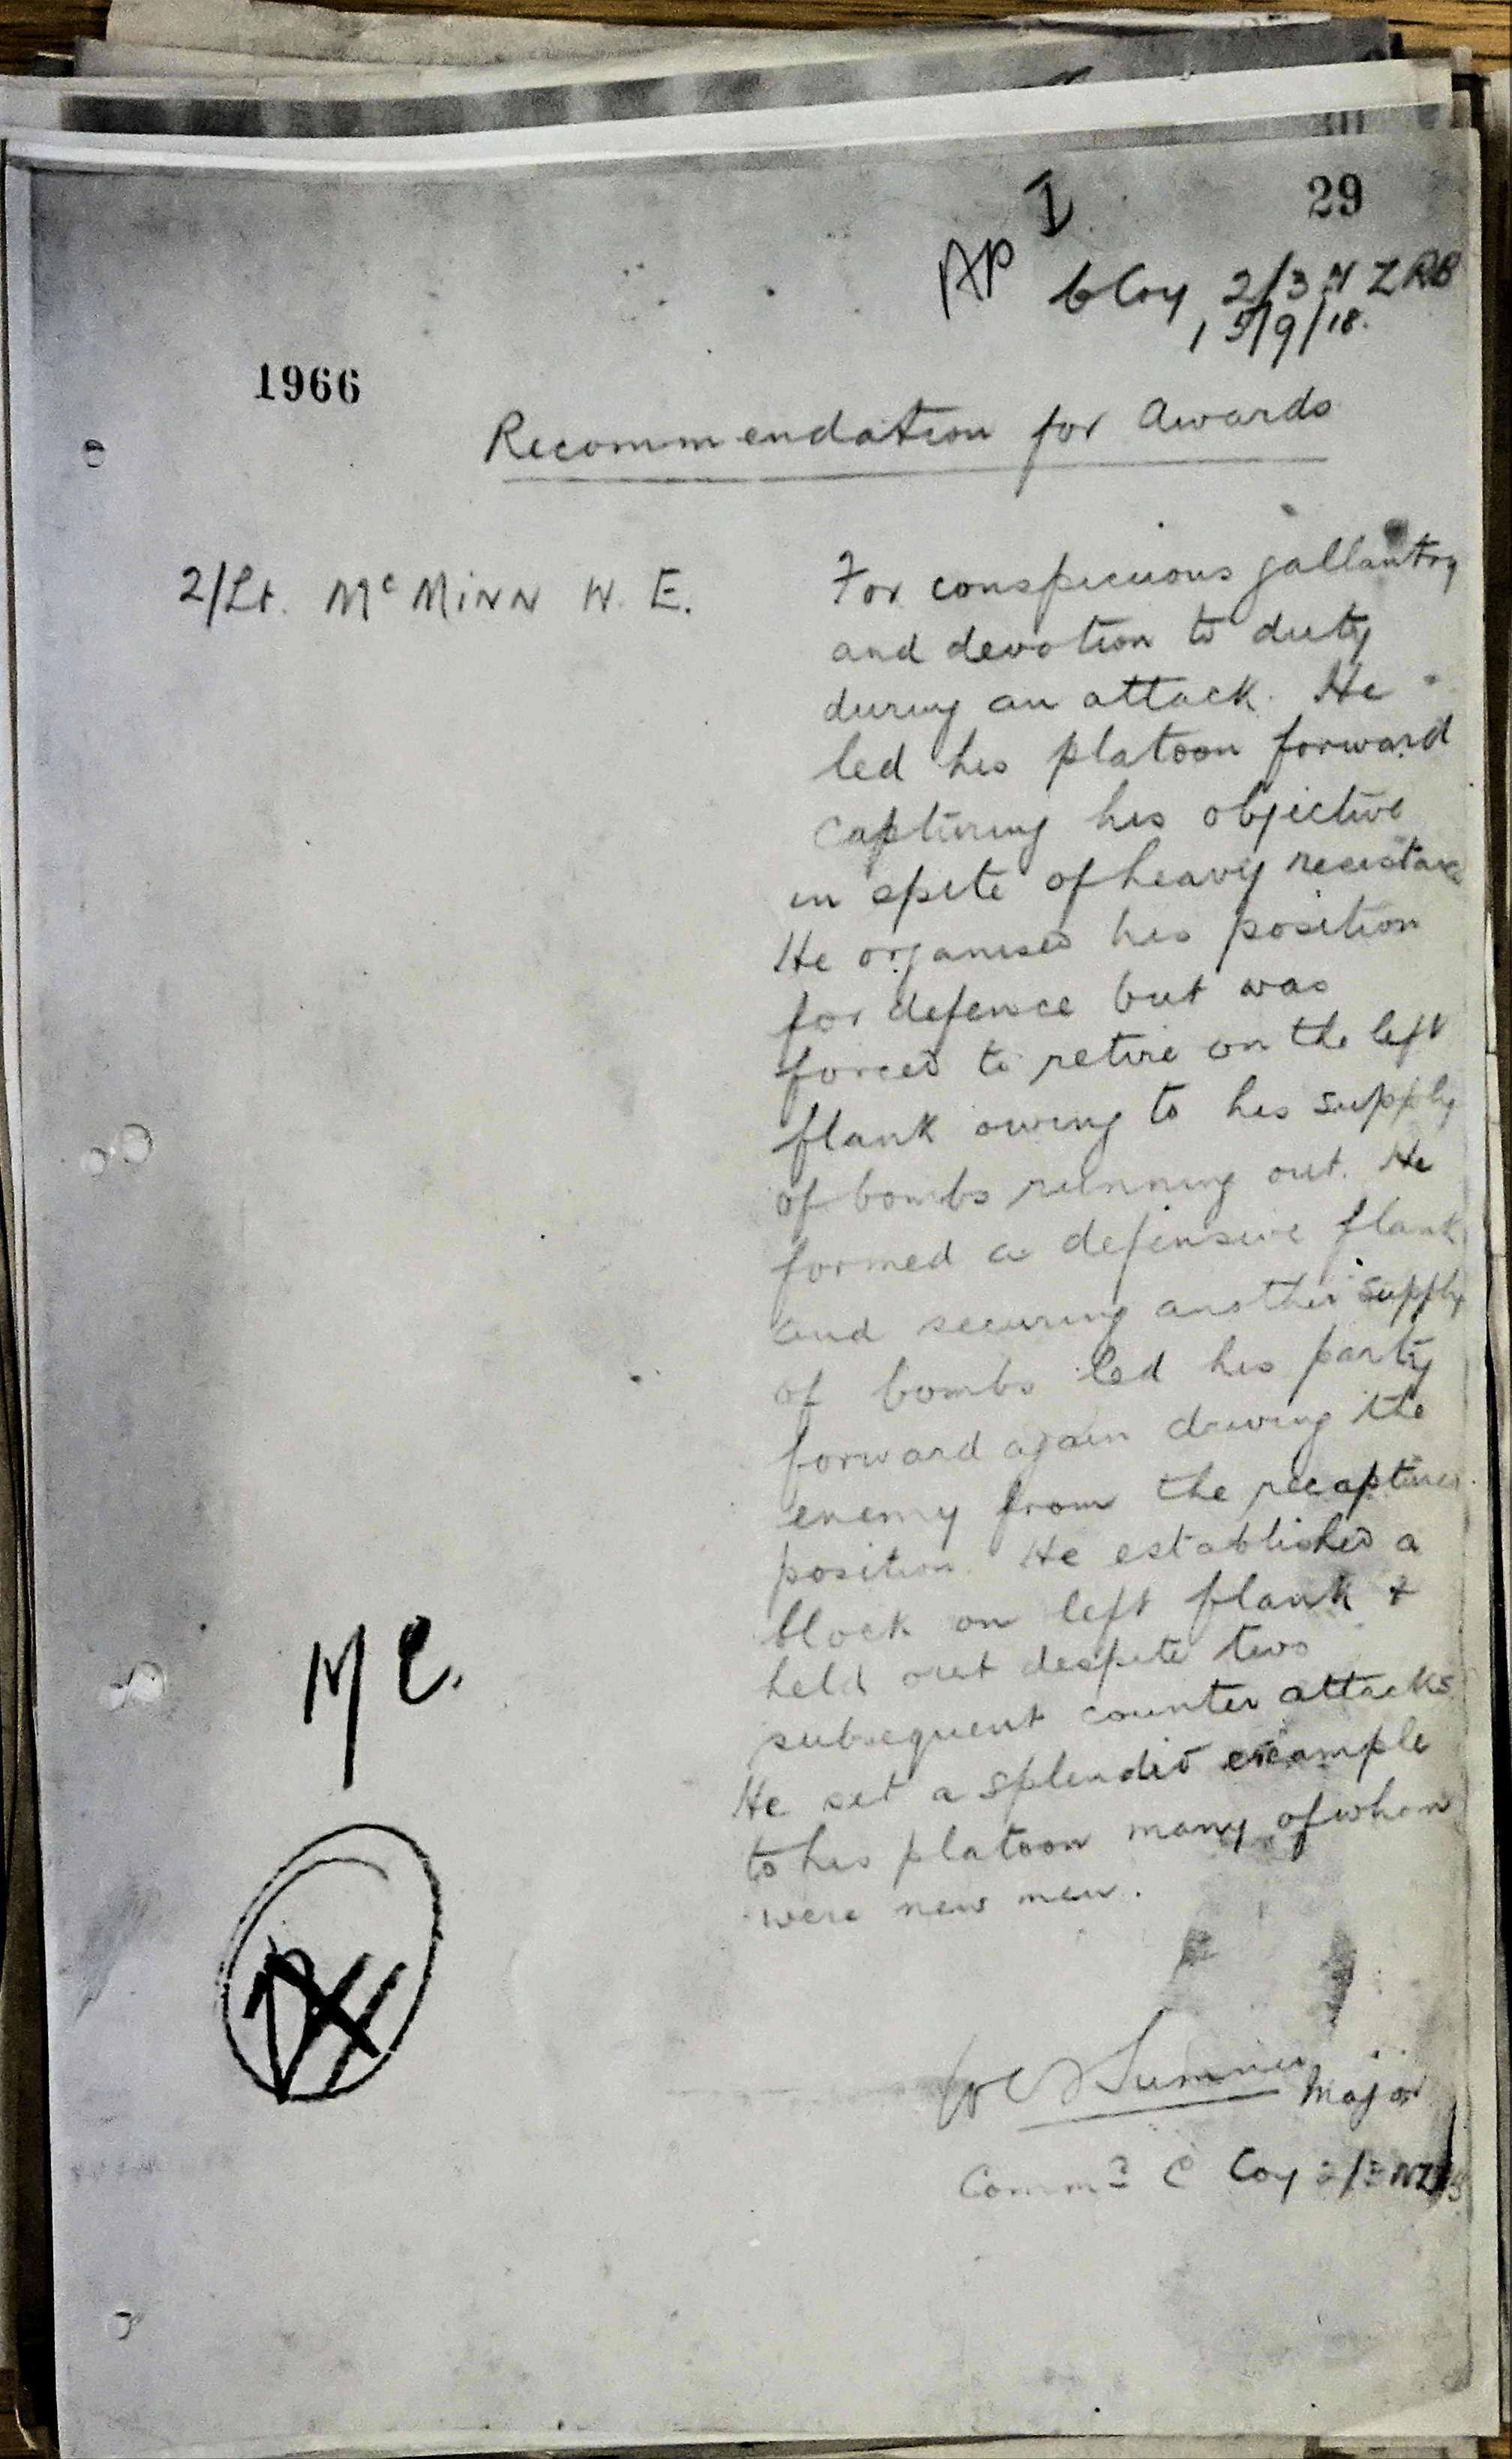 29
I
AP
C Coy 2/3 NZRB
15/9/18.
1966
Recommendation for Awards
2/Lt. McMINN W. E.
For conspicuous gallantry
and devotion to duty
during an attack. He
led his platoon forward
capturing his objective
in spite of heavy resistance
He organised his position
for defence but was
forced to retire on the left
flank owing to his supply
of bombs running out. He
formed a defensive flank
and securing another supply
of bombs led his party
forward again driving the
enemy from the recaptured
position. He established a
block on left flank &
held out despite two
subsequent counter attacks
He set a splendid example
to his platoon many of whom
were new men.
MC.
Major
Commd C Coy 2/3 NZRB